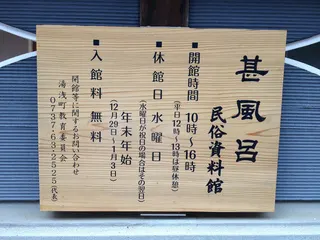 甚風呂
民俗資料館
■開館時間 10時〜16時
(平日12時〜13時は昼休憩)
■休館日 水曜日
(水曜日が祝日の場合はその翌日)
年末年始
(12月29日〜1月3日)
■入館料 無料
開館等に関するお問い合わせ
湯浅町教育委員会
0737-63-2525(代表)